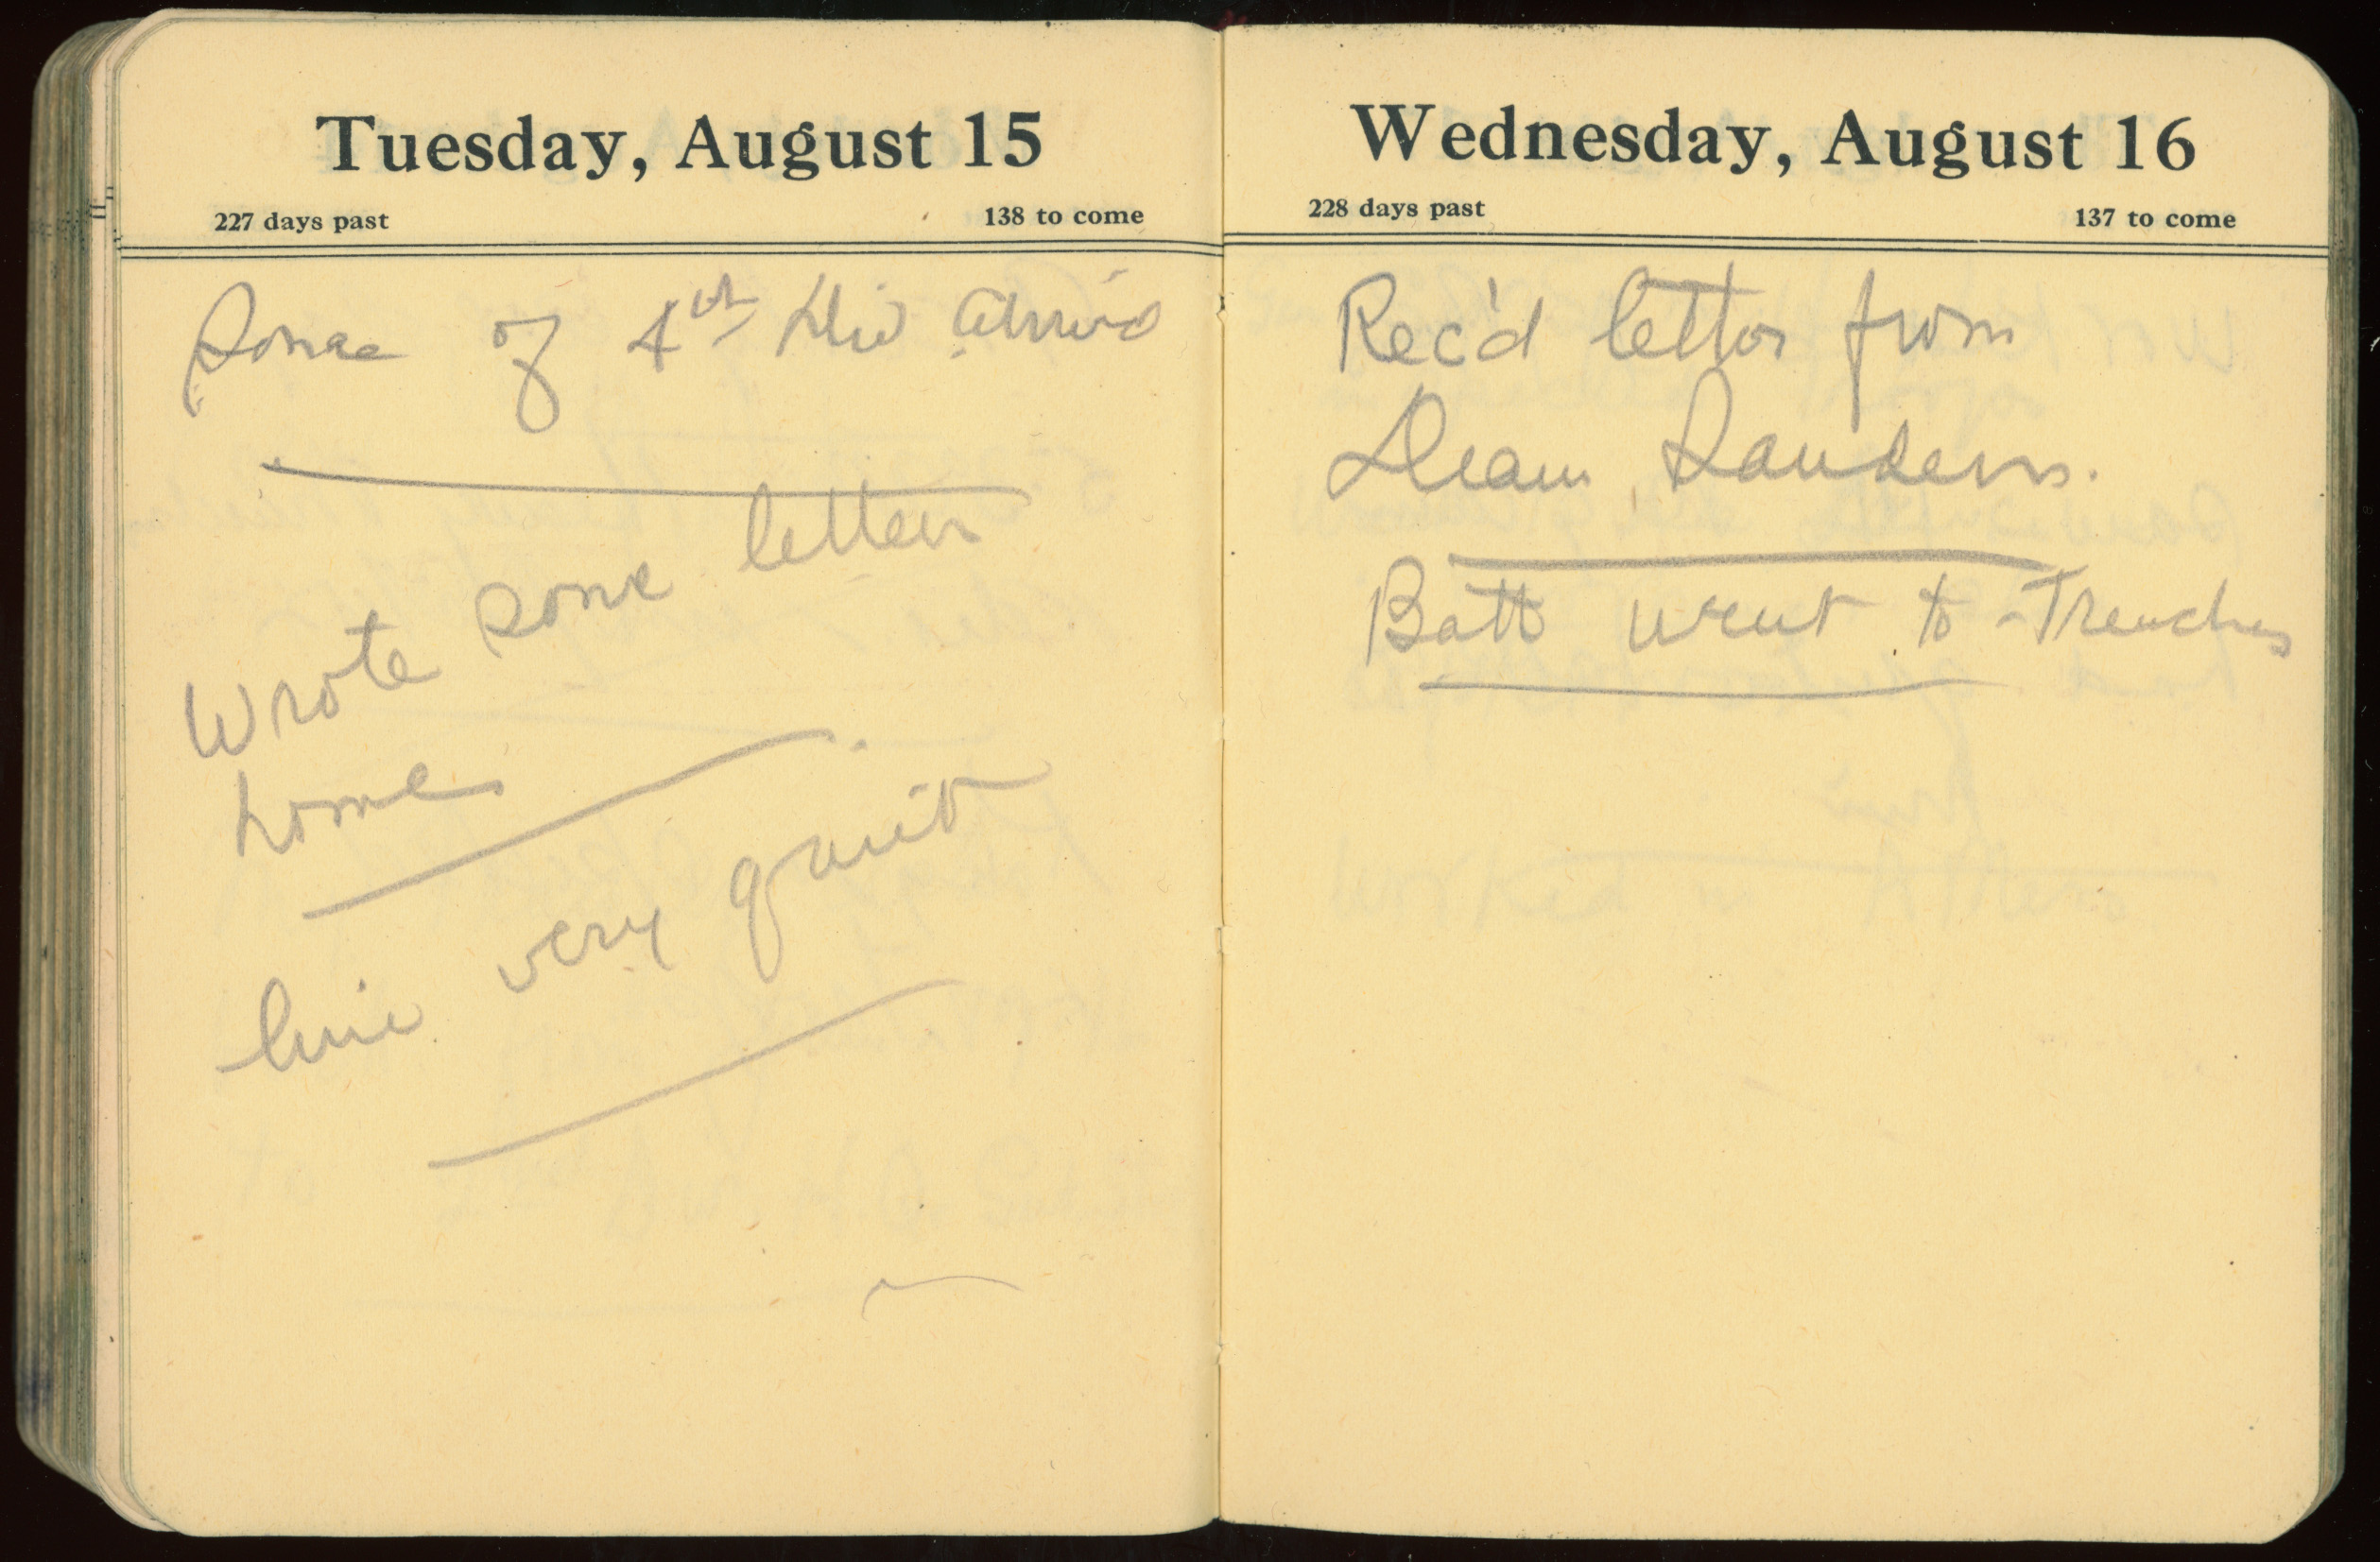 Tuesday, August 15
227 days past 138 to come
Some of 4th Div arriv'd
Wrote some letters
home
line very quiet
Wednesday, August 16
228 days past 137 to come
Rec'd letter from
Dean Landers.
Batt went to Trenches